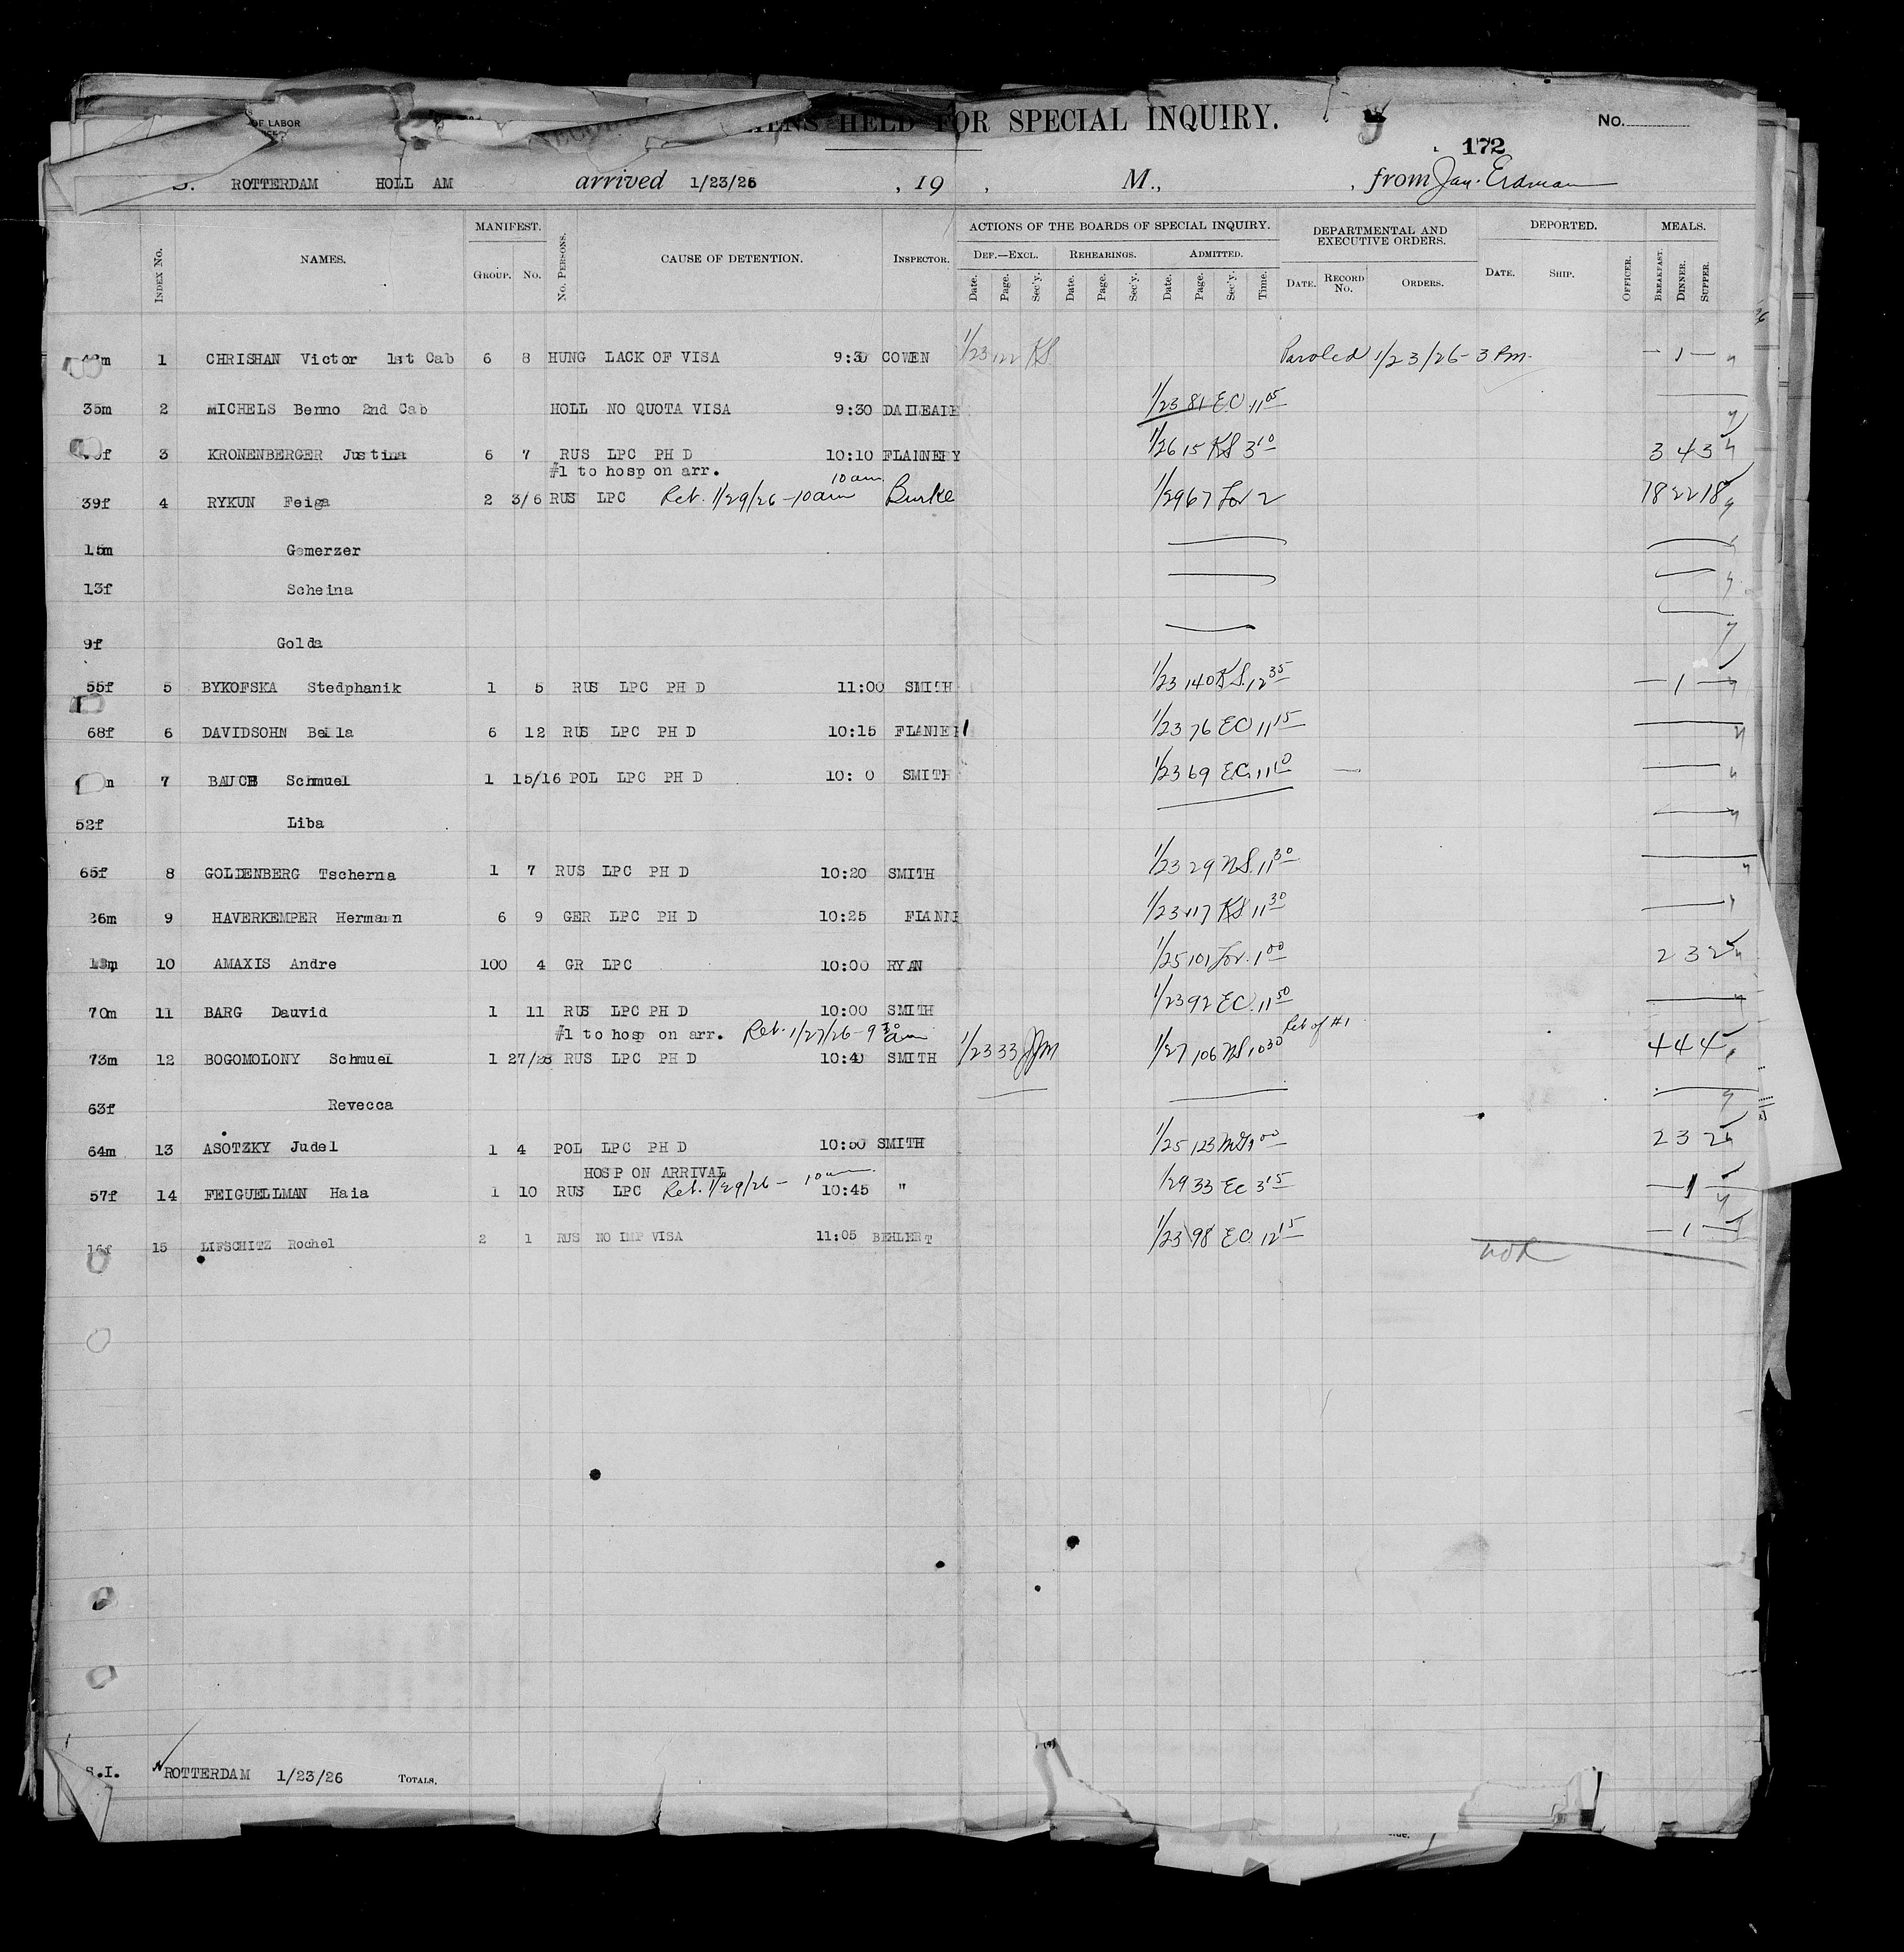 OF LABOR
HELD FOR SPECIAL INQUIRY.
No.
172
S. ROTTERDAM HOLL AM arrived 1/23/26 , 19 , M., , from Jan. Erdman
INDEX No. NAMES. MANIFEST. GROUP. No. No. PERSONS. CAUSE OF DETENTION. INSPECTOR. ACTIONS OF THE BOARDS OF SPECIAL INQUIRY. DEF.—EXCL. Date. Page. Sec'y. REHEARINGS. Date. Page. Sec'y. ADMITTED. Date. Page. Sec'y. Time. DEPARTMENTAL AND EXECUTIVE ORDERS. DATE. RECORD No. ORDERS. DEPORTED. DATE. SHIP. OFFICER. MEALS. BREAKFAST. DINNER. SUPPER.
1 CHRISHAN Victor 1st Cab 6 8 HUNG LACK OF VISA 9:30 COWEN 1/23 122 KS. Paroled 1/23/26 - 3 Pm. — 1 —
35m 2 MICHELS Benno 2nd Cab HOLL NO QUOTA VISA 9:30 1/23 81 EC 11 05
3 KRONENBERGER Justina 6 7 RUS LPC PH D 10:10 FLANNERY 1/26 15 KS 3 10 3 4 3
#1 to hosp on arr. 10 am
39f 4 RYKUN Feiga 2 3/6 RUS LPC Ret. 1/29/26 - 10 am Burke 1/29 67 2 18 22 18
15m Gemerzer
13f Scheina
9f Golda
55f 5 BYKOFSKA Stedphanik 1 5 RUS LPC PH D 11:00 SMITH 1/23 140 KS. 12 35 — 1 —
68f 6 DAVIDSOHN Beila 6 12 RUS LPC PH D 10:15 1/23 76 EC 11 15
7 Schmuel 1 15/16 POL LPC PH D SMITH 1/23 69 EC. —
52f Liba
65f 8 GOLDENBERG Tscherna 1 7 RUS LPC PH D 10:20 SMITH 1/23 29 NS. 11 30
26m 9 HAVERKEMPER Hermann 6 9 GER LPC PH D 10:25 FLANNE 1/23 117 KS 11 30
10 AMAXIS Andre 100 4 GR LPC 10:00 RYAN 1/25 101 1 00 2 3 2
70m 11 BARG Dauvid 1 11 RUS LPC PH D 10:00 SMITH 1/23 92 EC. 11 50
#1 to hosp on arr. Ret. 1/27/26 - 9 30 am Ret of #1
73m 12 BOGOMOLONY Schmuel 1 27/28 RUS LPC PH D 10:40 SMITH 1/23 33 JJM 1/27 106 NS 10 30 4 4 4
63f Revecca
64m 13 ASOTZKY Judel 1 4 POL LPC PH D 10:50 SMITH 1/25 123 2 3 2
HOSP ON ARRIVAL 10 am
57f 14 FEIGUELLMAN Haia 1 10 RUS LPC Ret. 1/29/26 - 10:45 " 1/29 33 EC 3 15 — 1 —
16f 15 LIFSCHITZ Rochel 2 1 RUS NO IMP VISA 11:05 BEHLERT 1/23 98 EC. 12 15 — 1 —
S.I. ROTTERDAM 1/23/26 TOTALS,